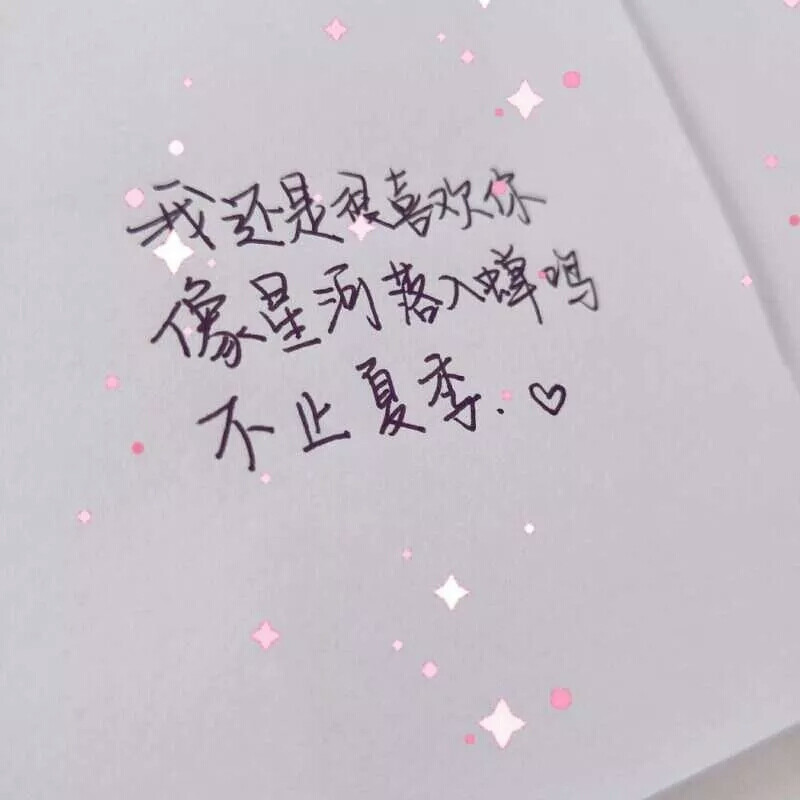 我还是很喜欢你
像星河落入蝉鸣
不止夏季.♡